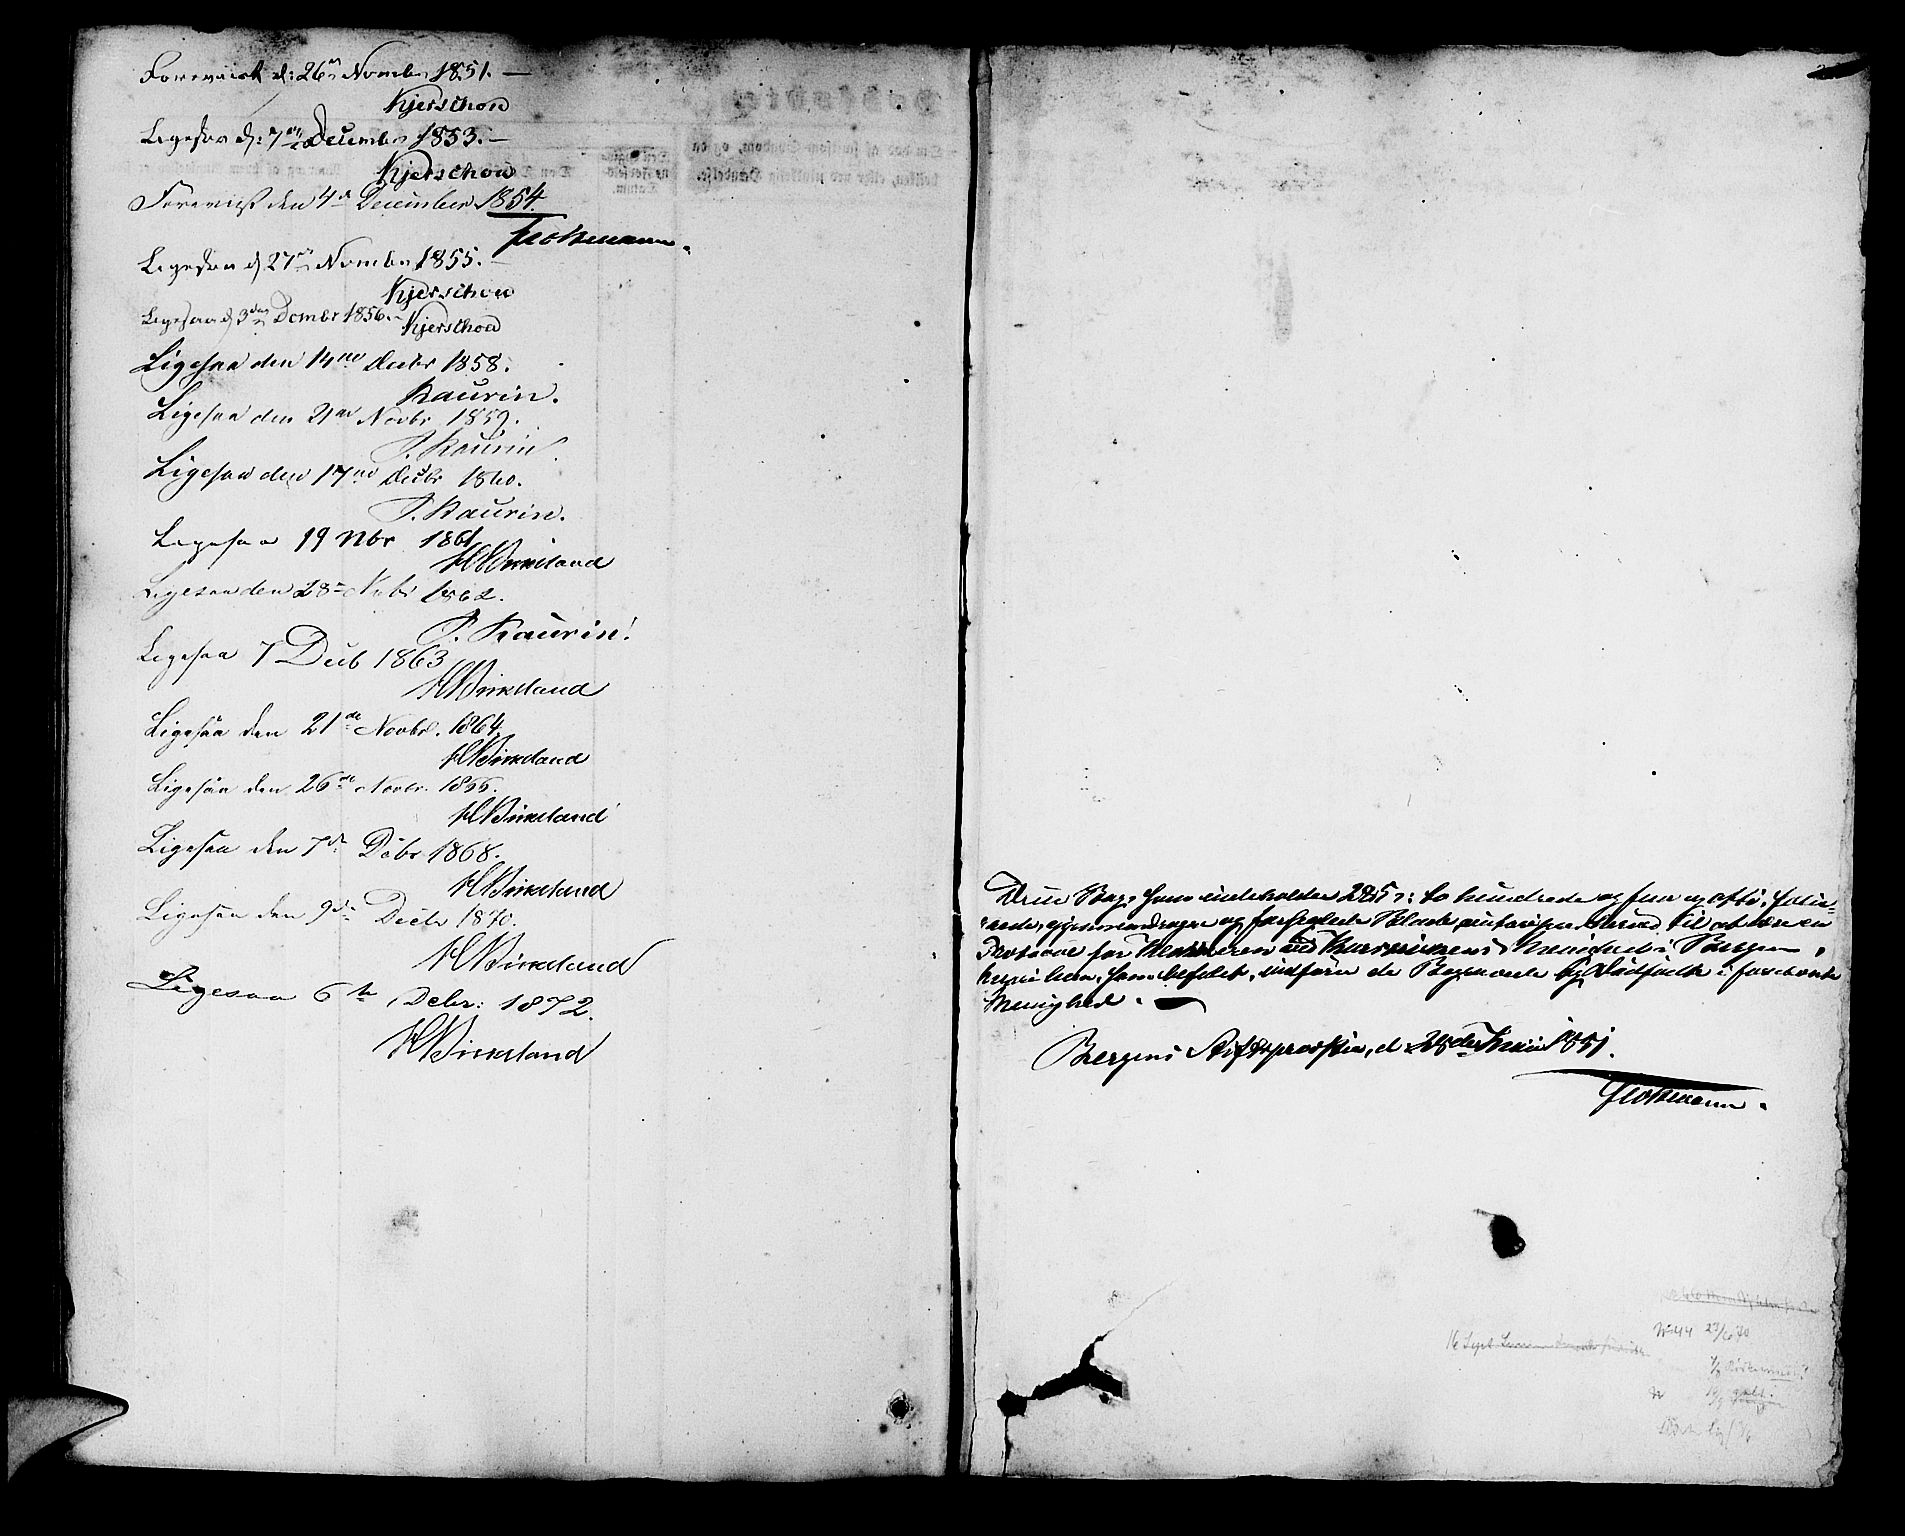 Foreviist d: 26de Novembr 1851. —
Kjerschow
Ligesaa d: 7de Decembr 1853. —
Kjerschow
Foreviist den 4de December 1854.
Ligesaa d 27de Novembr 1855. —
Kjerschow
Ligesaa d 3die Dcmbr 1856. —
Kjerschow
Ligesaa den 14de Decbr 1858.
Kaurin.
Ligesaa den 21de Novbr 1859.
J. Kaurin.
Ligesaa den 17de Decbr 1860.
J. Kaurin.
Ligesaa 19 Nbr 1861
H Birkeland
Ligesaa den 28de Nvbr 1862.
J. Kaurin.
Ligesaa 7 Decb 1863
H Birkeland
Ligesaa den 21de Novbr. 1864.
H Birkeland
Ligesaa den 26de Novbr. 1866.
H Birkeland
Ligesaa den 7de Debr 1868.
H Birkeland
Ligesaa den 9de Decbr 1870.
H Birkeland
Ligesaa 6te Debr: 1872.
H Birkeland
Denne Bog, som indeholder 285 : to hundrede og fem og otti, folie=
rede, gjennemdragne og forseglede Blade, autoriseres herved til at være en
Protocol for Klokkeren ved Korskirkens Menighed i Bergen,
hvori han, som befalet, indfører de Begravede og Dødfødte i forbenævnte
Menighed.
Bergens Stiftsprovstie, d 28de Juni 1851.